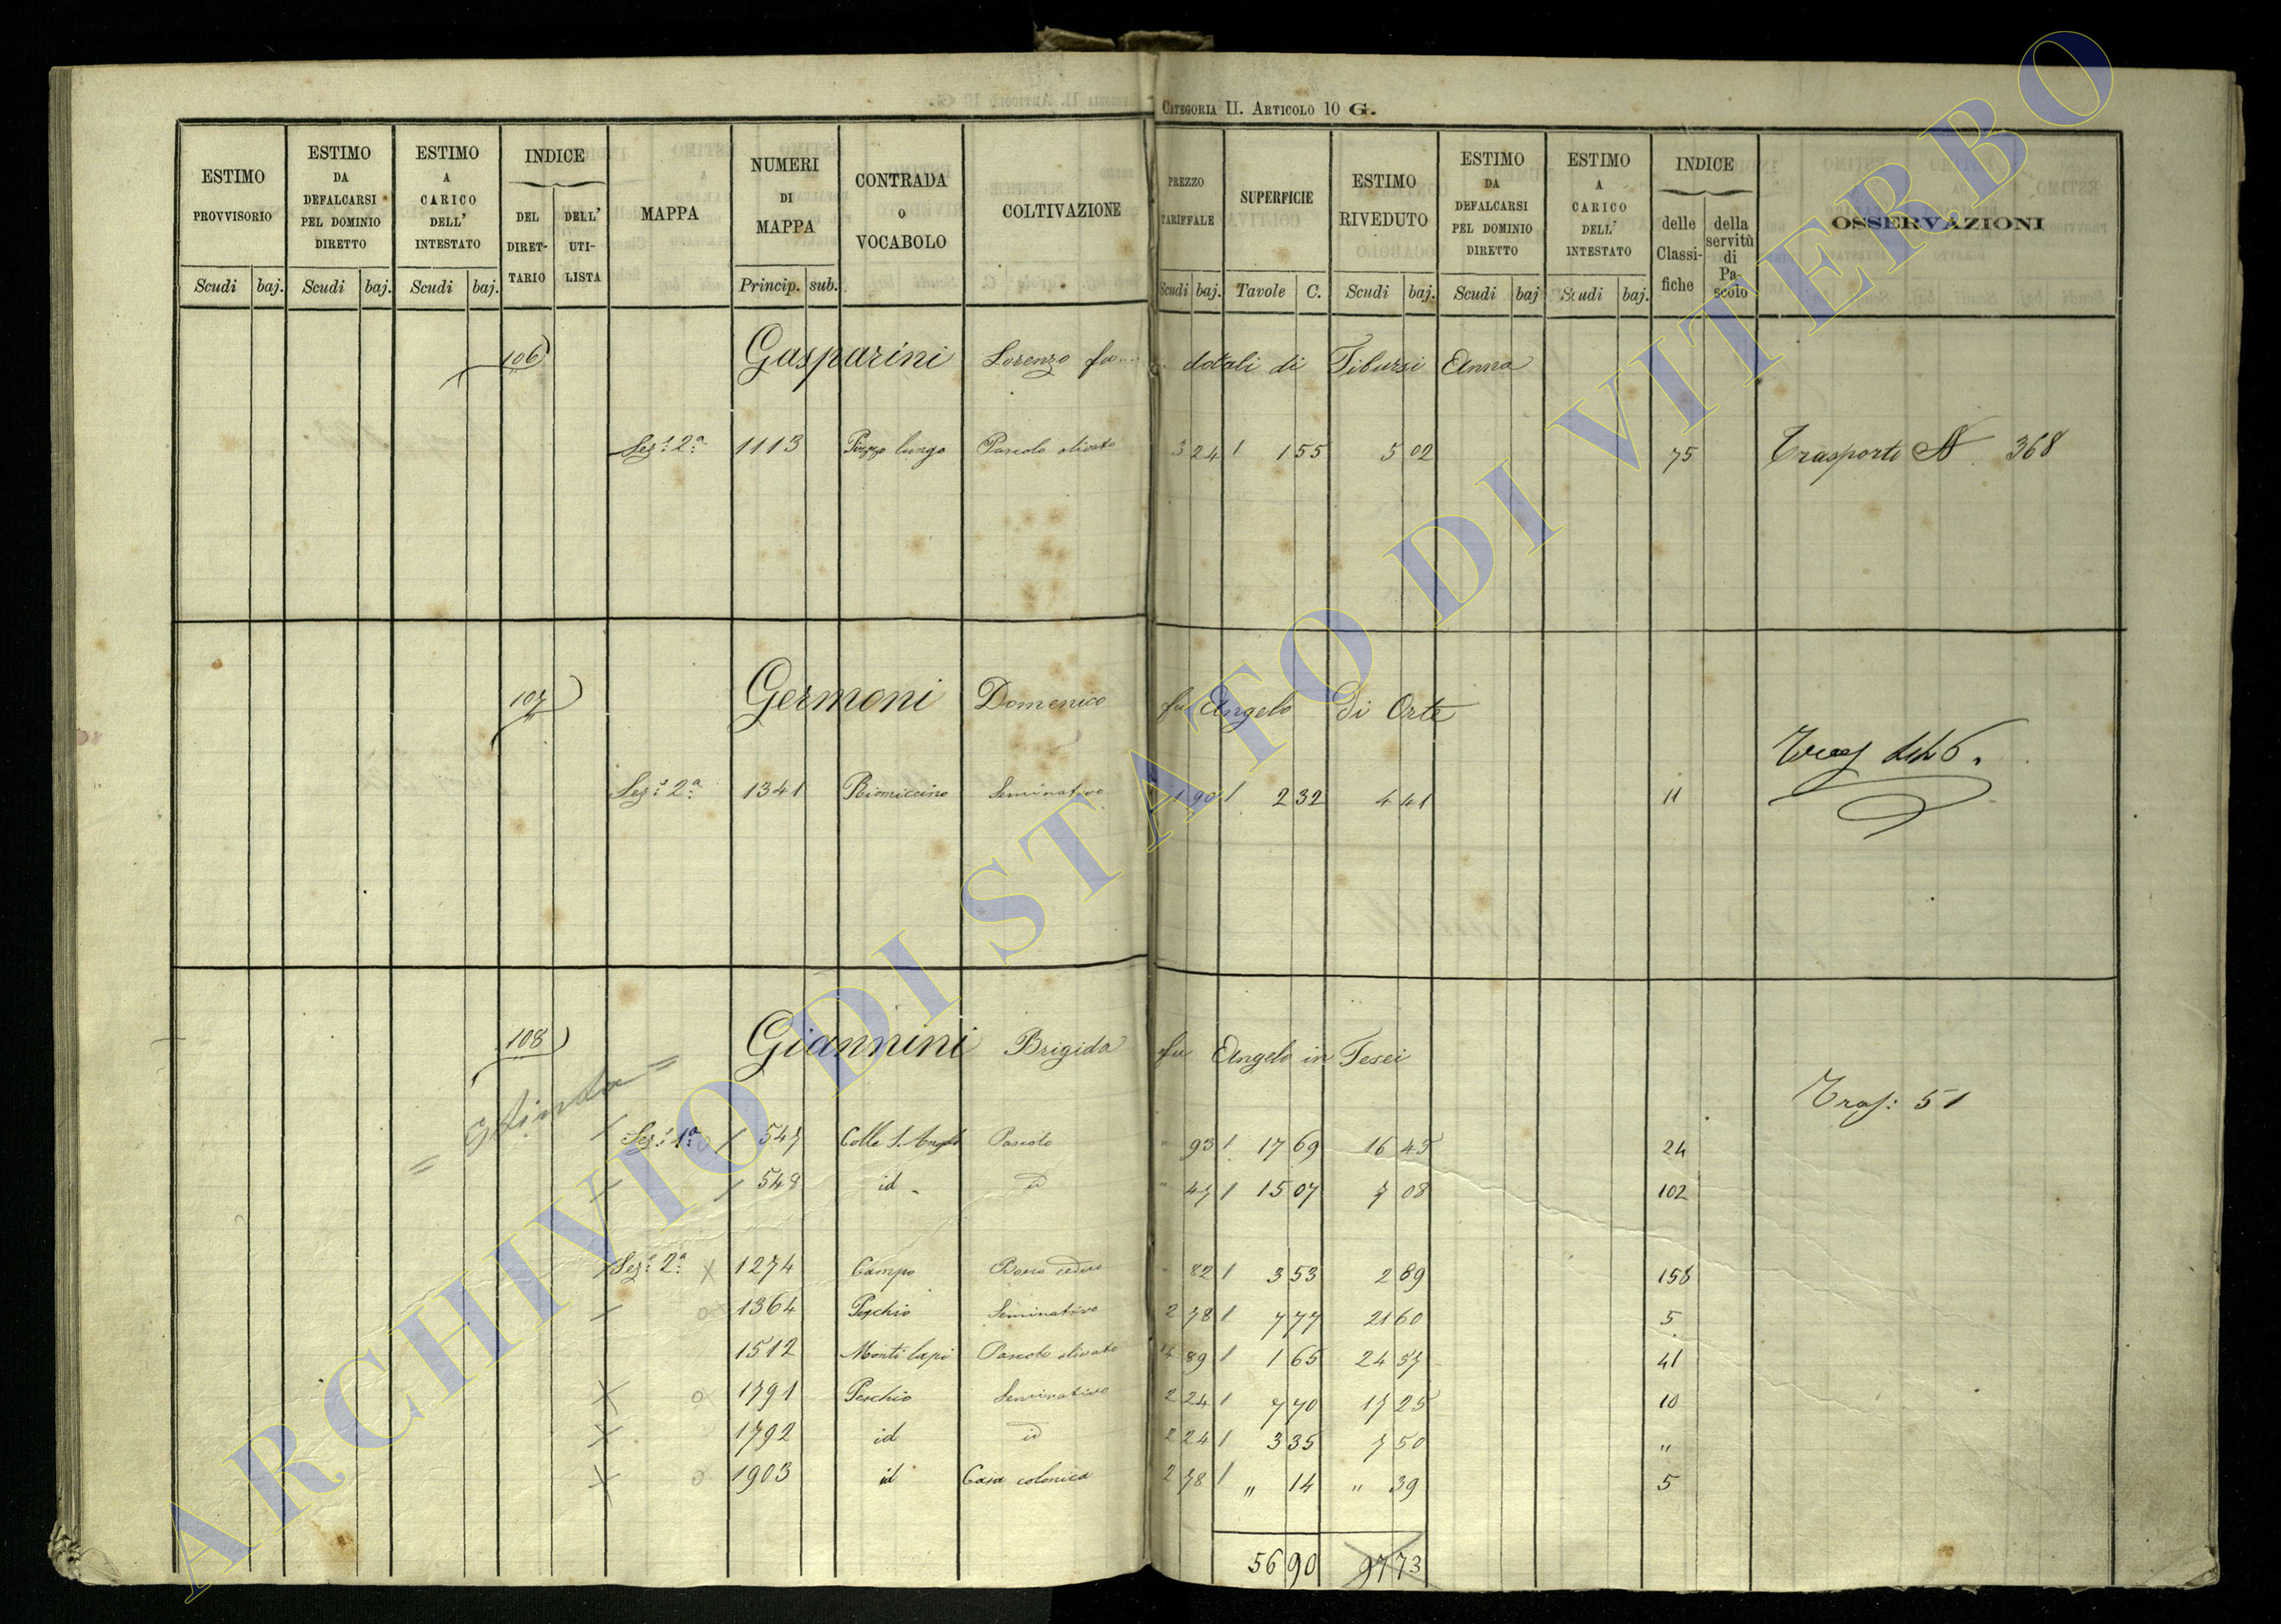 CATEGORIA II. ARTICOLO 10 G.
ESTIMO PROVVISORIO Scudi baj.
ESTIMO DA DEFALCARSI PEL DOMINIO DIRETTO Scudi baj.
ESTIMO A CARICO DELL' INTESTATO Scudi baj.
INDICE DEL DIRET-TARIO DELL' UTI-LISTA
MAPPA
NUMERI DI MAPPA Princip. sub.
CONTRADA O VOCABOLO
COLTIVAZIONE
PREZZO TARIFFALE Scudi baj.
SUPERFICIE Tavole C.
ESTIMO RIVEDUTO Scudi baj.
ESTIMO DA DEFALCARSI PEL DOMINIO DIRETTO Scudi baj
ESTIMO A CARICO DELL' INTESTATO Scudi baj.
INDICE delle Classi-fiche della servitù di Pa-scolo
OSSERVAZIONI
106 Gasparini Lorenzo fu.... dotali di Tiburzi Anna
Sez.e 2a 1113 Pizzo lungo Pascolo olivato 3 24 1 55 5 02 75 Trasporto N 368
107 Germoni Domenico fu Angelo di Orte
Sez.e 2a 1341 Riomiccino Seminativo 1 90 2 32 4 41 11
108 Giannini Brigida fu Angelo in Tesei
= Estinta =
Tras: 51
Sez.e 1a 547 Colle S. Angelo Pascolo " 93 17 69 16 45 24
548 id id " 47 15 07 7 08 102
Sez.e 2a 1274 Campo Bosco ceduo " 82 3 53 2 89 158
1364 Peschio Seminativo 2 78 7 77 21 60 5
1512 Monti lapi Pascolo olivato 14 89 1 65 24 57 41
1791 Peschio Seminativo 2 24 7 70 17 25 10
1792 id id 2 24 3 35 7 50 "
1903 id Casa colonica 2 78 " 14 " 39 5
56 90 97 73
ARCHIVIO DI STATO DI VITERBO